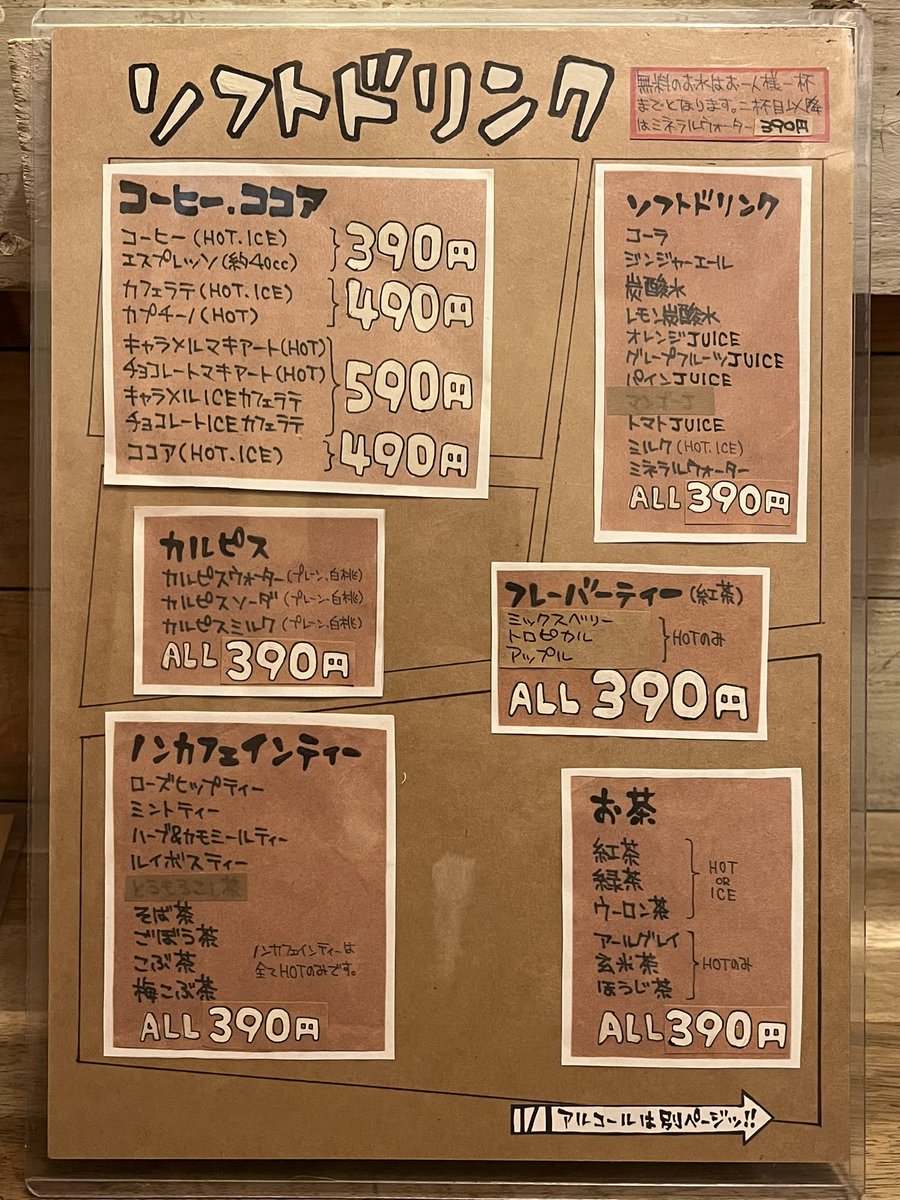 ソフトドリンク
無料のお水はお一人様一杯
までとなります。二杯目以降
はミネラルウォーター 390円
コーヒー.ココア
コーヒー(HOT.ICE)
エスプレッソ(約40cc)
390円
カフェラテ(HOT.ICE)
カプチーノ(HOT)
490円
キャラメルマキアート(HOT)
チョコレートマキアート(HOT)
キャラメルICEカフェラテ
チョコレートICEカフェラテ
590円
ココア(HOT.ICE)
490円
ソフトドリンク
コーラ
ジンジャーエール
炭酸水
レモン炭酸水
オレンジJUICE
グループフルーツJUICE
パインJUICE
トマトJUICE
ミルク(HOT.ICE)
ミネラルウォーター
ALL 390円
カルピス
カルピスウォーター(プレーン.白桃)
カルピスソーダ(プレーン.白桃)
カルピスミルク(プレーン.白桃)
ALL 390円
フレーバーティー(紅茶)
ミックスベリー
トロピカル
アップル
HOTのみ
ALL 390円
ノンカフェインティー
ローズヒップティー
ミントティー
ハーブ&カモミールティー
ルイボスティー
とうもろこし茶
そば茶
ごぼう茶
こぶ茶
梅こぶ茶
ノンカフェインティーは
全てHOTのみです。
ALL 390円
お茶
紅茶
緑茶
ウーロン茶
HOT
OR
ICE
アールグレイ
玄米茶
ほうじ茶
HOTのみ
ALL 390円
アルコールは別ページッ!!